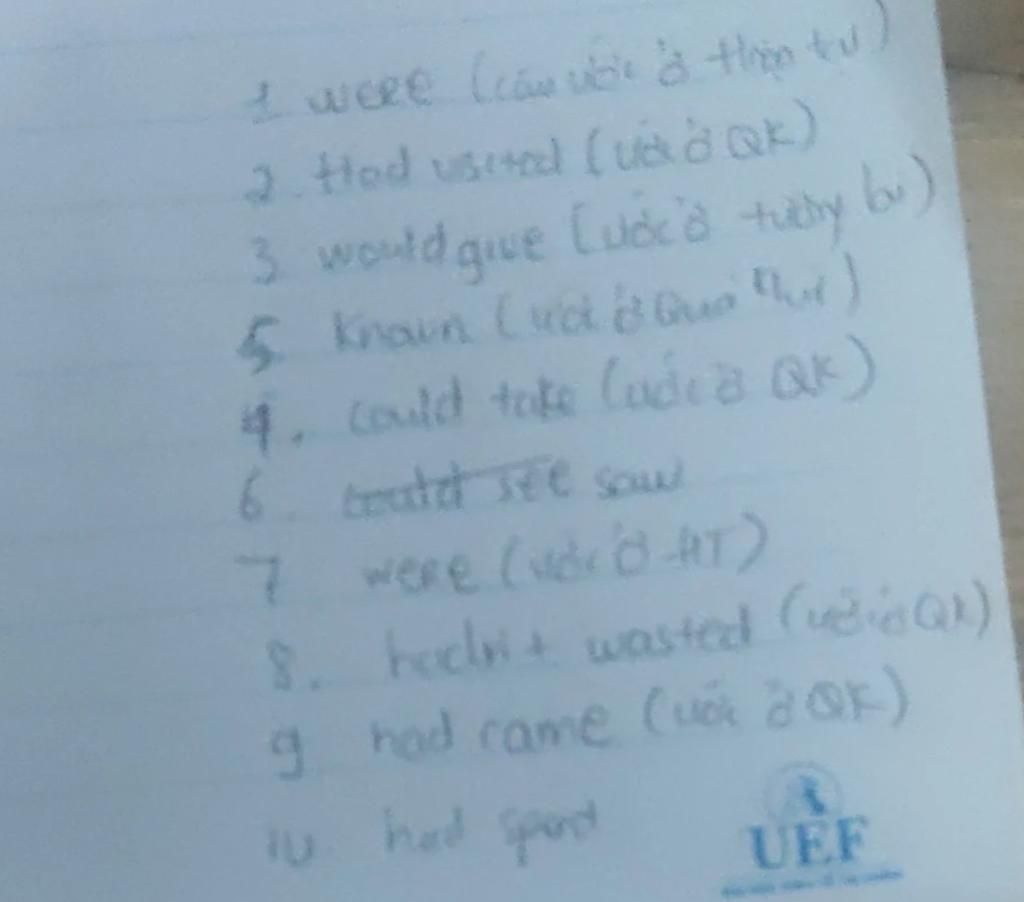 1 were (câu ước ở hiện tại)
2. Had visited (ước ở QK)
3 would give (ước ở tương lai)
5. Known (ước ở Quá khứ)
4. could take (ước ở QK)
6. could see saw
7 were (ước ở HT)
8. hadn't wasted (ước ở QK)
9 had came (ước ở QK)
10 had
UEF